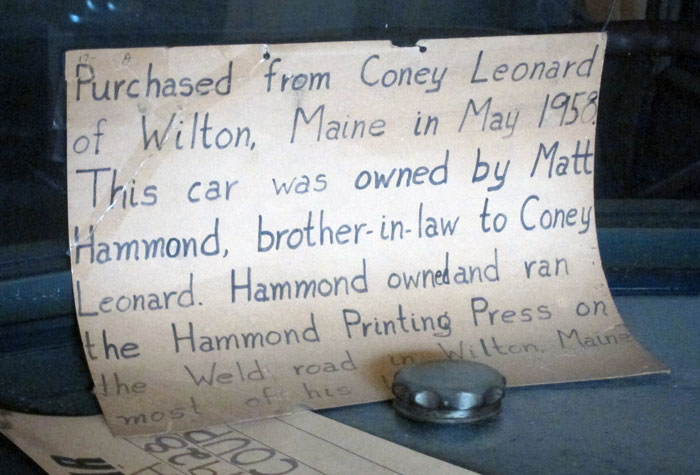 Purchased from Coney Leonard
of Wilton, Maine in May 1958.
This car was owned by Matt
Hammond, brother-in-law to Coney
Leonard. Hammond owned and ran
the Hammond Printing Press on
the Weld road in Wilton, Maine
most of his
COUP